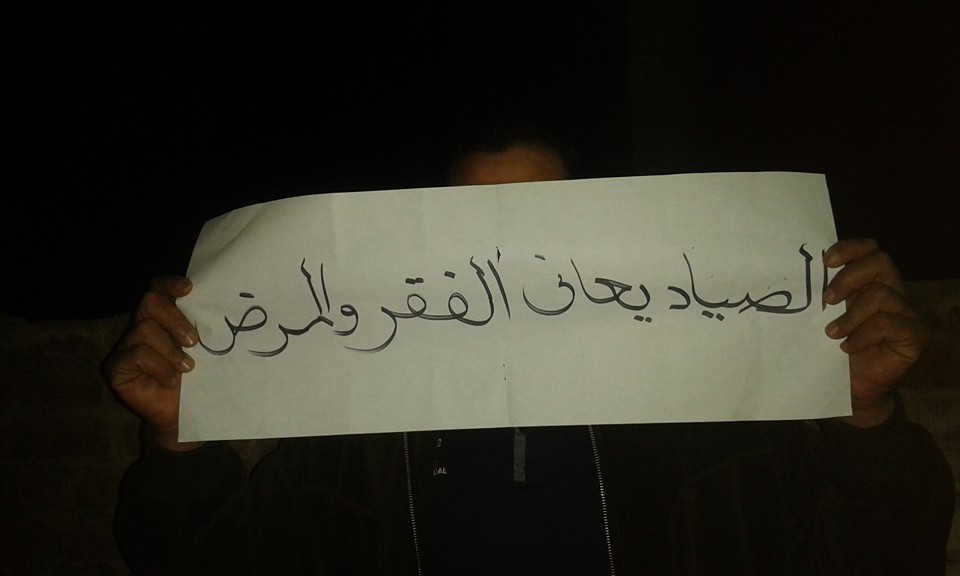 الصياد يعانى الفقر والمرض